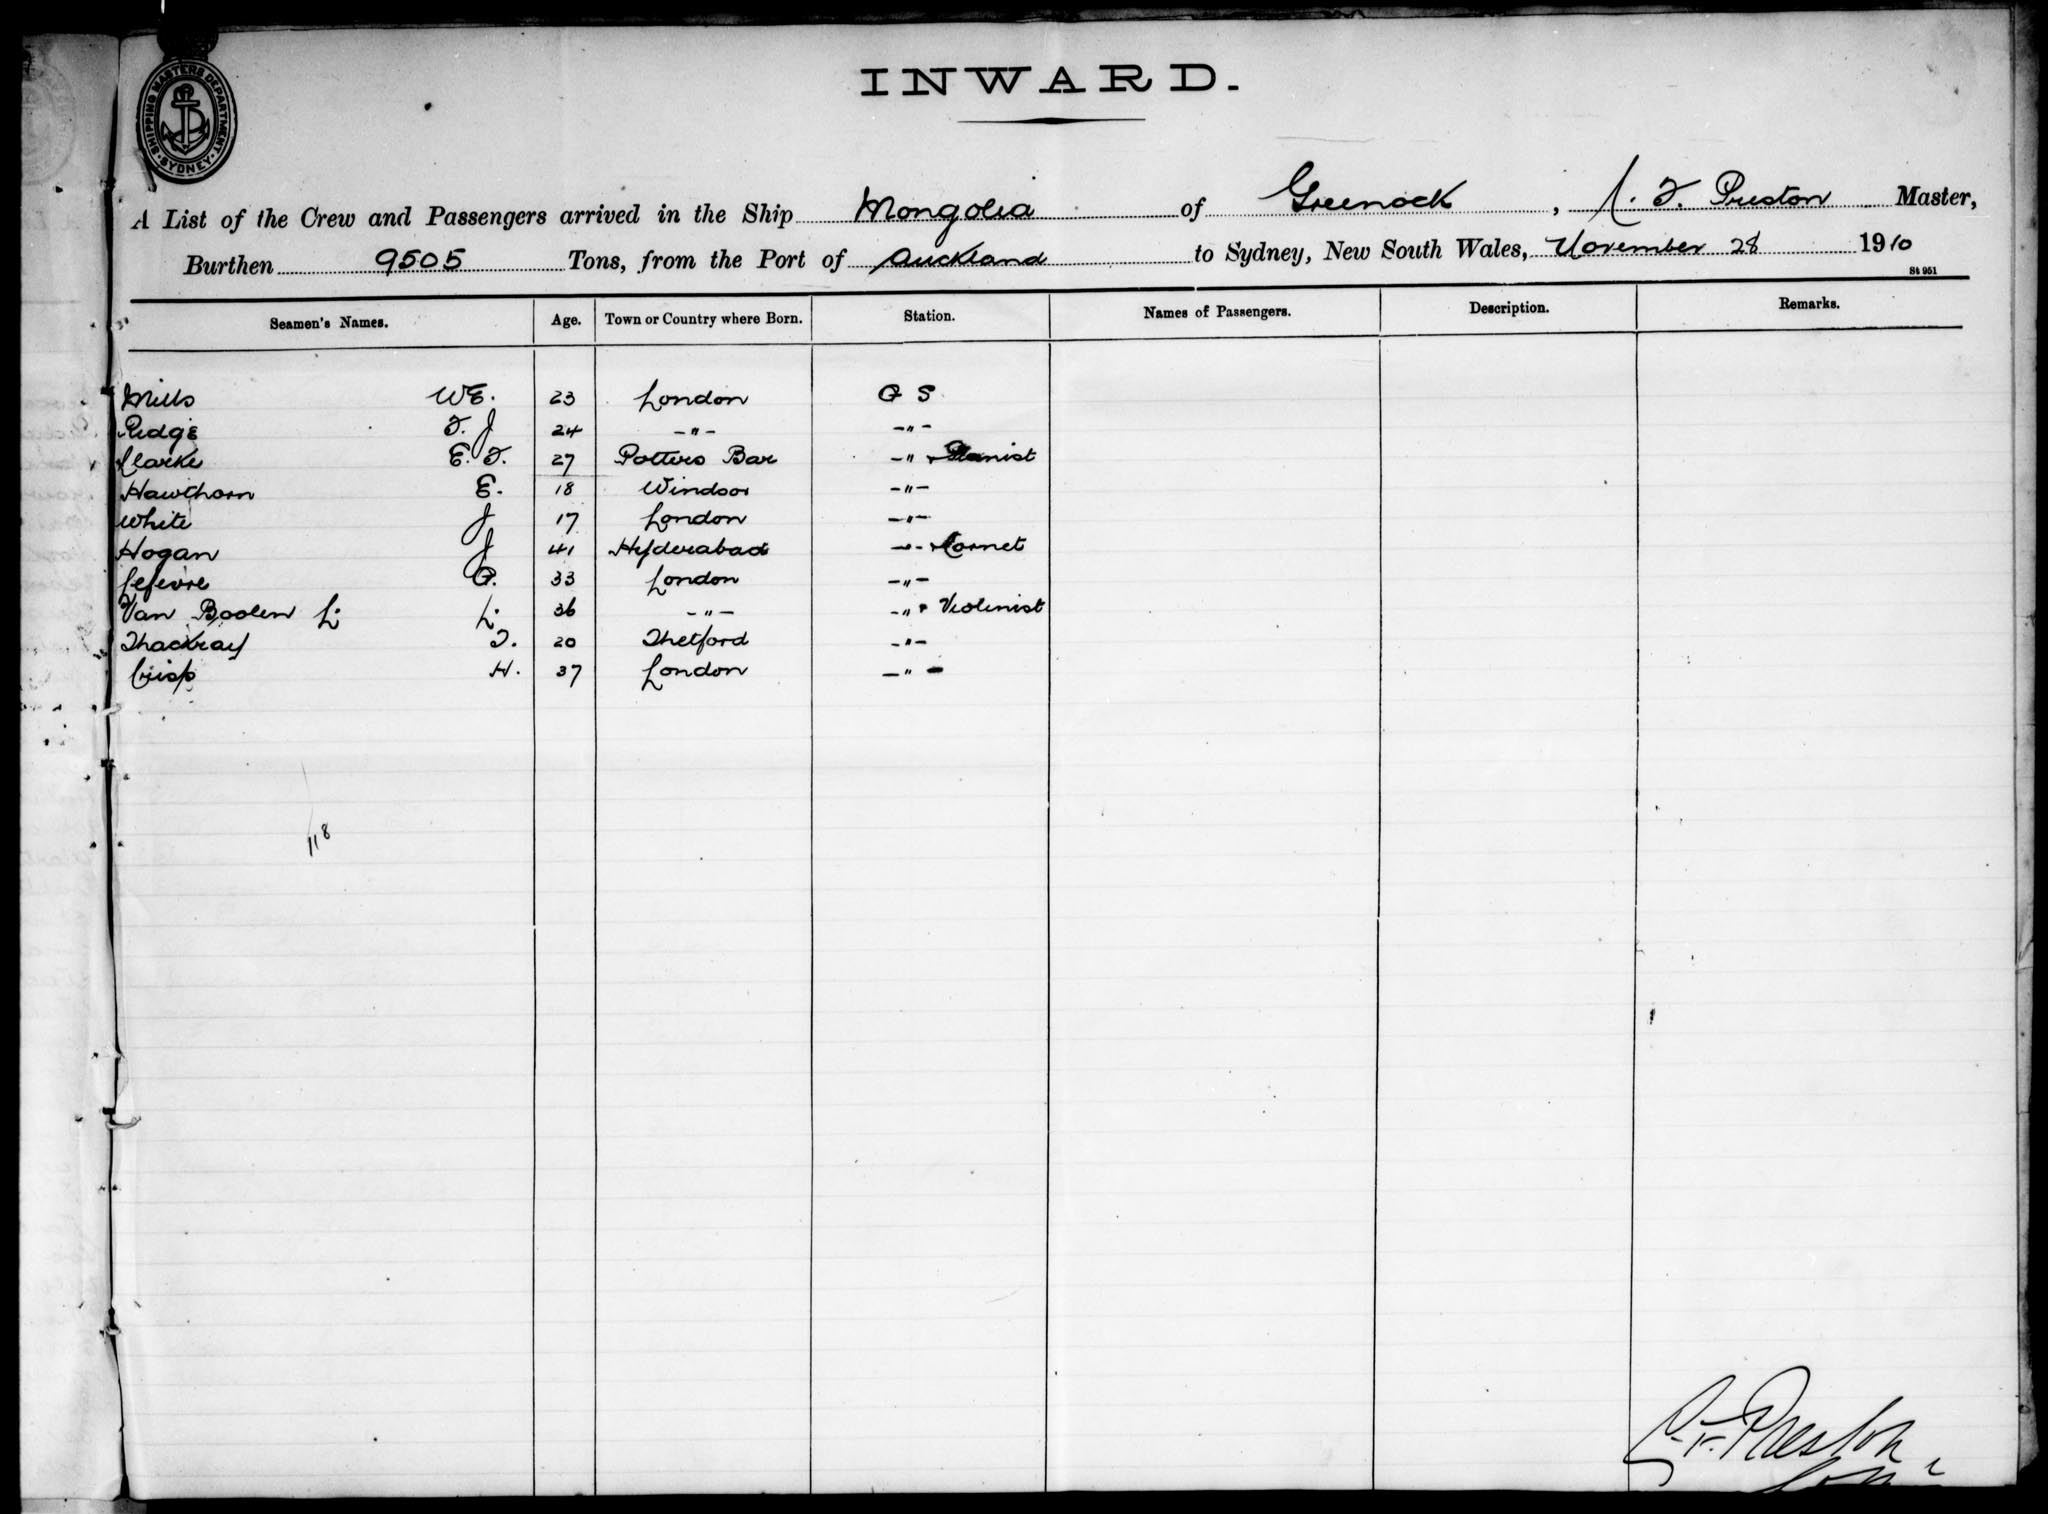 SHIPPING MASTERS DEPARTMENT · SYDNEY ·
INWARD.
A List of the Crew and Passengers arrived in the Ship Mongolia of Greenock, F. Preston Master,
Burthen 9505 Tons, from the Port of Auckland to Sydney, New South Wales, November 28 1910
St 951
Seamen's Names. Age. Town or Country where Born. Station. Names of Passengers. Description. Remarks.
Mills WE. 23 London G S
Ridge F. J 24 -"- -"-
Clarke E. F. 27 Potters Bar -" Pianist
Hawthorn E. 18 Windsor -"-
White J 17 London -"-
Hogan J 41 Hyderabad -"- Cornet
Lefevre G. 33 London -"-
Van Boolen L. L. 36 -"- -" Violinist
Thackray T. 20 Thetford -"-
Crisp H. 37 London -"-
118
F. Preston